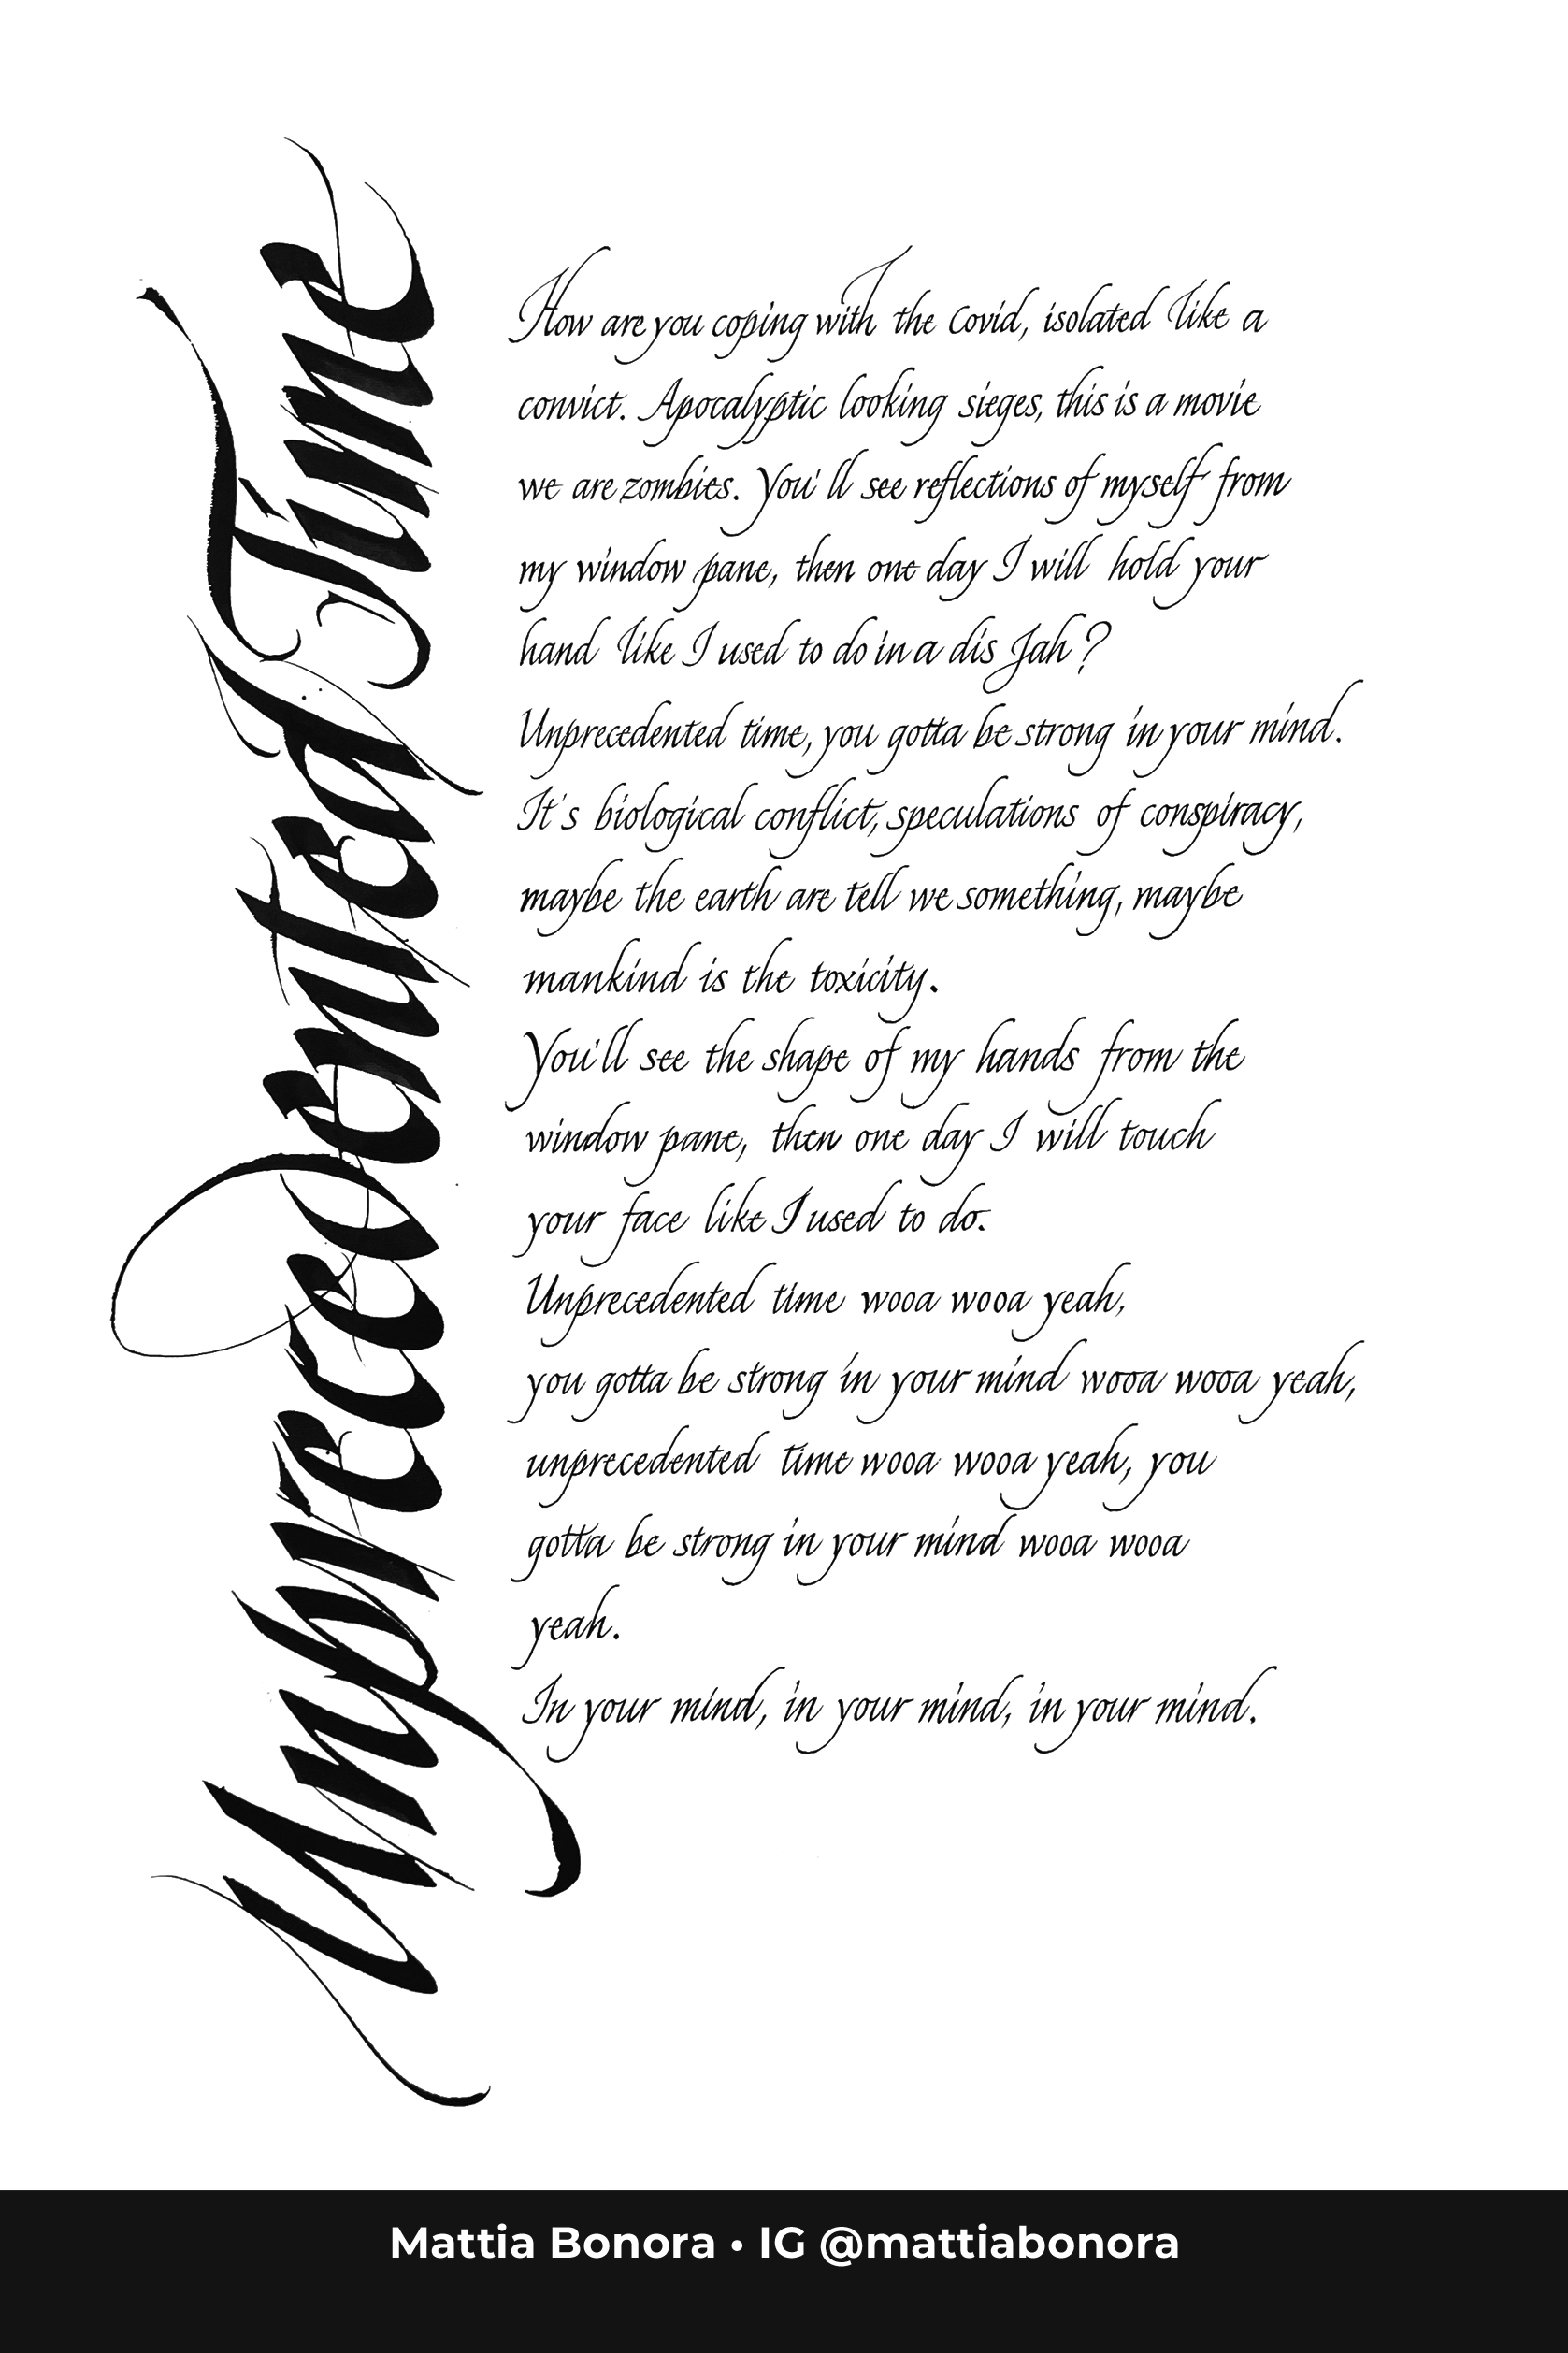 Unprecedented Time
How are you coping with the Covid, isolated like a
convict. Apocalyptic looking sieges, this is a movie
we are zombies. You'll see reflections of myself from
my window pane, then one day I will hold your
hand like I used to do in a dis Jah?
Unprecedented time, you gotta be strong in your mind.
It's biological conflict, speculations of conspiracy,
maybe the earth are tell we something, maybe
mankind is the toxicity.
You'll see the shape of my hands from the
window pane, then one day I will touch
your face like I used to do.
Unprecedented time wooa wooa yeah,
you gotta be strong in your mind wooa wooa yeah,
unprecedented time wooa wooa yeah, you
gotta be strong in your mind wooa wooa
yeah.
In your mind, in your mind, in your mind.
Mattia Bonora • IG @mattiabonora